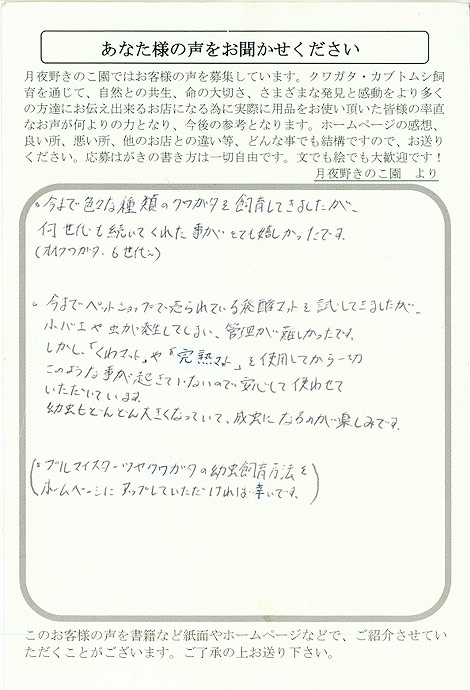 あなた様の声をお聞かせください
月夜野きのこ園ではお客様の声を募集しています。クワガタ・カブトムシ飼
育を通じて、自然との共生、命の大切さ、さまざまな発見と感動をより多く
の方達にお伝え出来るお店になる為に実際に用品をお使い頂いた皆様の率直
なお声が何よりの力となり、今後の参考となります。ホームページの感想、
良い所、悪い所、他のお店との違い等、どんな事でも結構ですので、お送り
ください。応募はがきの書き方は一切自由です。文でも絵でも大歓迎です！
月夜野きのこ園 より
。今まで色々な種類のクワガタを飼育してきましたが、
何世代も続いてくれた事がとても嬉しかったです。
(オオクワガタ、6世代〜)
。今までペットショップで売られている発酵マットを試してきましたが、
小バエや虫が発生してしまい、管理が難しかったです。
しかし、「くわマット」や「完熟マット」を使用してから一切
このような事が起きていないので安心して使わせて
いただいています。
幼虫もどんどん大きくなっていて、成虫になるのが楽しみです。
(。ブルマイスターツヤクワガタの幼虫飼育方法を
ホームページにアップしていただければ幸いです。)
このお客様の声を書籍など紙面やホームページなどで、ご紹介させてい
ただくことがございます。ご了承の上お送り下さい。